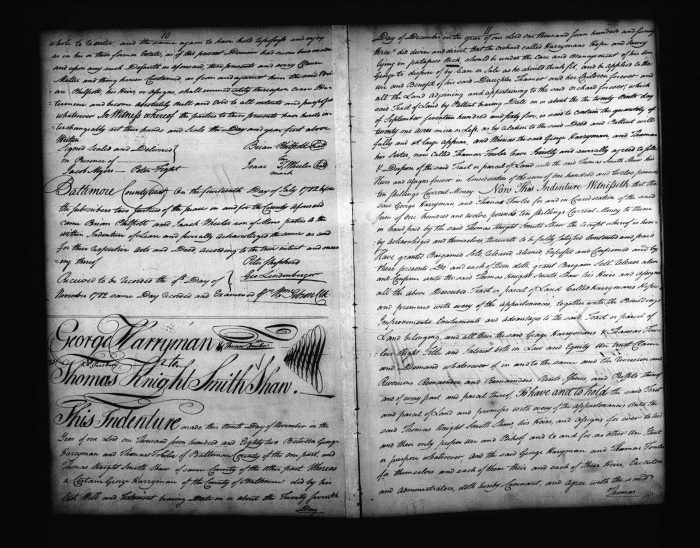 10
whole to reenter, and the same again to have hold repossess and enjoy
as in his or their former Estate, as if this present Demise had never been made
and upon any such Default as aforesaid, these presents and every Clause
Matter and thing herein Contained as from and against him the said Bri-
an Philpott his Heirs or assigns, shall immediately thereupon cease De-
termine and become absolutely null and void to all intents and purposes
whatsoever In Witness whereof the parties to these presents have hereto in-
terchangeably set their hands and Seals the Day and year first above
Written
Signed Sealed and Delivered
in Presence of
Brian Philpott Seal
Isaac Wheeler Seal
mark
Jacob Myers
Baltimore County On the fourteenth Day of July 1782 before
the subscribers two Justices of the peace in and for the County aforesaid
came Brian Philpott and Isaac Wheeler parties to the
within Indenture of Lease and severally acknowledged the same as and
for their respective Acts and Deed, according to the true intent and mean-
ing thereof
Peter Shepherd
Geo Lindenberger
Received to be recorded the Day of
November 1782 same Day recorded and Examined Wm Gibson Clk
George Harryman
to
Thomas Knight Smith Shaw.
This Indenture made this tenth Day of November in the
Year of our Lord one Thousand seven hundred and Eighty two Between George
Harryman and Thomas Towler of Baltimore County of the one part, and
Thomas Knight Smith Shaw of same County of the other part Whereas
a Certain George Harryman of the County of Baltimore did by his
Last Will and Testament bearing Date on or about the Twenty seventh
Day
11
Day of December in the year of our Lord one thousand seven hundred and seventy
three did devise and direct, that the orchard called Harrymans Hope and
lying in patapsco Neck, should be under the Care and Management of his son
George to dispose of by lease or Sale as he should think fit, and be applied to the
use and Benefit of his own Daughter and her Children forever and
all the Land Adjoining and appertaining to the said Orchard forever, which
said Tract of Land by Pattent bearing Date on or about the twenty Ninth day
of September seventeen hundred and forty five, is said to contain the quantity of
twenty one acres more or less as by relation to the said Deed and Pattent will
fully and at large appear, and Whereas the said George Harryman, and
his Sister, now called Thomas Towler have Jointly and severally agreed to sell
& Dispose of the said Tract or parcel of Land unto the said Thomas Smith Shaw his
Heirs and assigns forever in consideration of the sum of one hundred and twelve pounds
ten shillings Current Money Now This Indenture Witnesseth that the
said George Harryman, and Thomas Towler for and in Consideration of the said
sum of one hundred and twelve pounds ten shillings Current Money to them
in hand paid by the said Thomas Knight Smith Shaw the receipt whereof is here-
by acknowledged and themselves therewith to be fully satisfied Contented and paid
Have granted Bargained Sold Released Aliened Enfeoffed and Confirmed and by
these present Do and each of them doth, grant Bargain Sell Release Alien
and Confirm unto the said Thomas Knight Smith Shaw his Heirs and assigns
all the above Described Tract or parcel of Land Called Harrymans Hope
and premises with every of the appurtenances, together with the Buildings
Improvements Emoluments and advantages to the said Tract or parcel of
Land belonging and all their the said George Harrymans & Thomas Tow-
lers Right Title and Interest both in Law and Equity Use Trust Claim
and Demand whatsoever of in and to the same and the Reversion and
Reversions Remainder and Remainders Rents Issues, and Profits there-
of and of every part and parcel thereof To have and to hold the said Tract
and parcel of Land and premises with every of the appurtenances unto the
said Thomas Knight Smith Shaw, his Heirs and assigns for ever to his
and their only proper use and Behoof and to and for no other Use Intent
or purpose whatsoever. And the said George Harryman and Thomas Towler
for themselves and each of them their and each of their Heirs, Executors
and Administrators, doth hereby Covenant, and agree with the said
Thomas